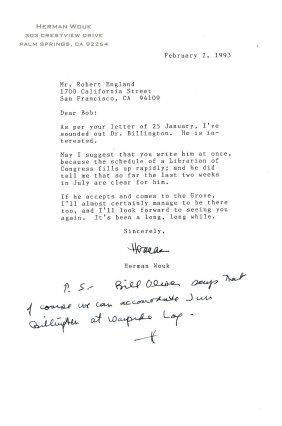 HERMAN WOUK
303 CRESTVIEW DRIVE
PALM SPRINGS, CA 92264
February 2, 1993
Mr. Robert England
1700 California Street
San Francisco, CA 94109
Dear Bob:
As per your letter of 25 January, I've
sounded out Dr. Billington. He is in-
terested.
May I suggest that you write him at once,
because the schedule of a Librarian of
Congress fills up rapidly; and he did
tell me that so far the last two weeks
in July are clear for him.
If he accepts and comes to the Grove,
I'll almost certainly manage to be there
too, and I'll look forward to seeing you
again. It's been a long, long while.
Sincerely,
Herman
Herman Wouk
P.S. - Bill says that
of course we can accomodate Jim
Billington at
H